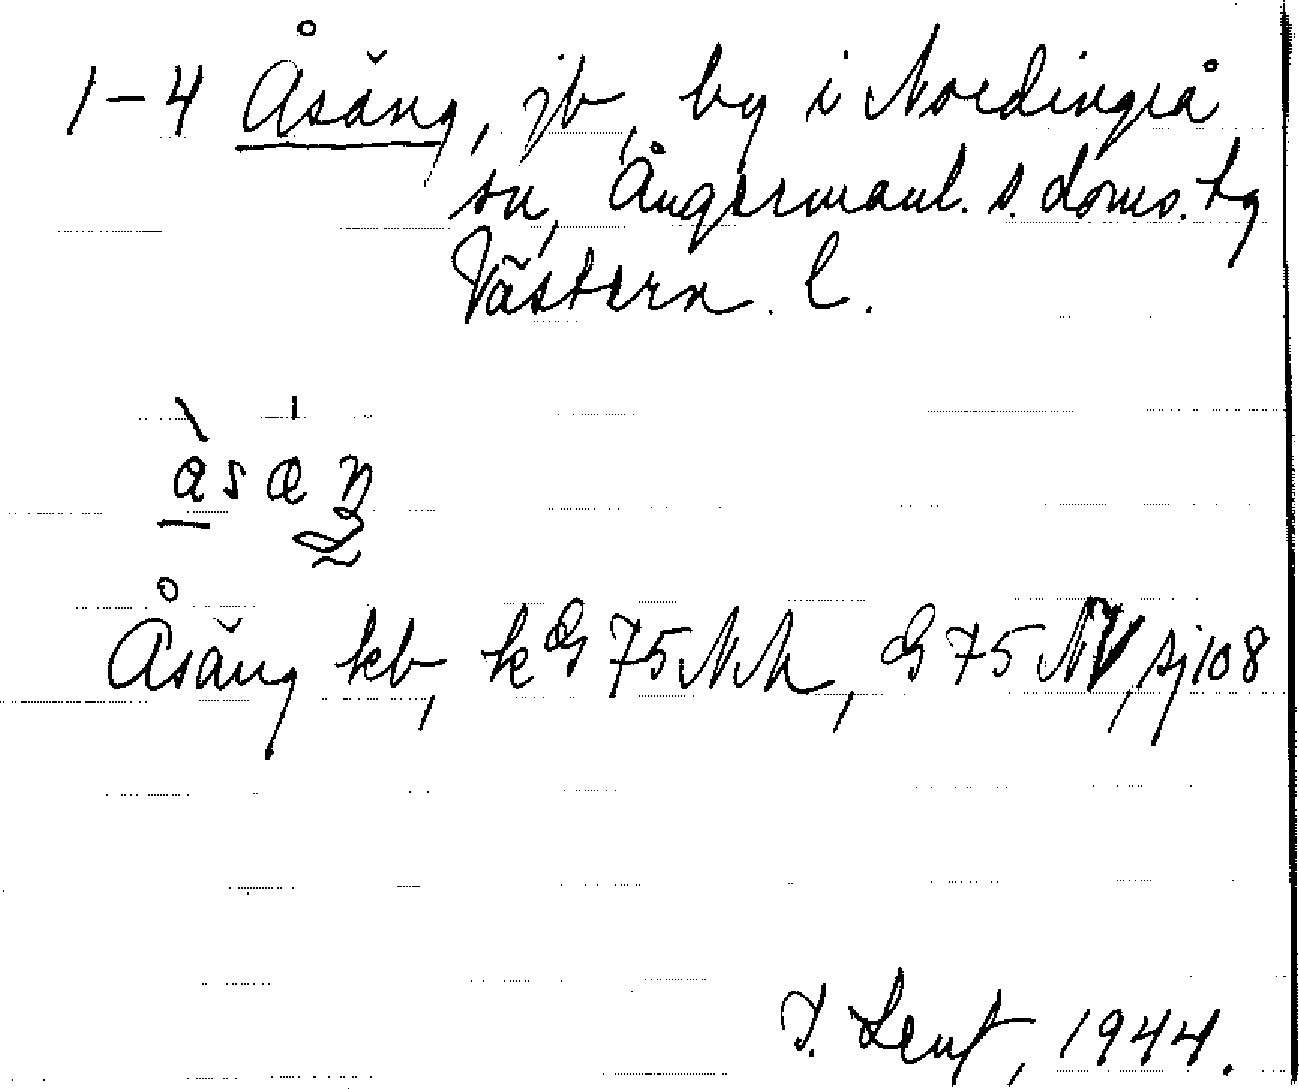 1-4 Åsäng, jb, by i Nordingrå
sn, Ångermanl. s. doms. tg
Västern. l.
Åsäng kb, k G 75 NM, G 75 NV, sj 108
1944.